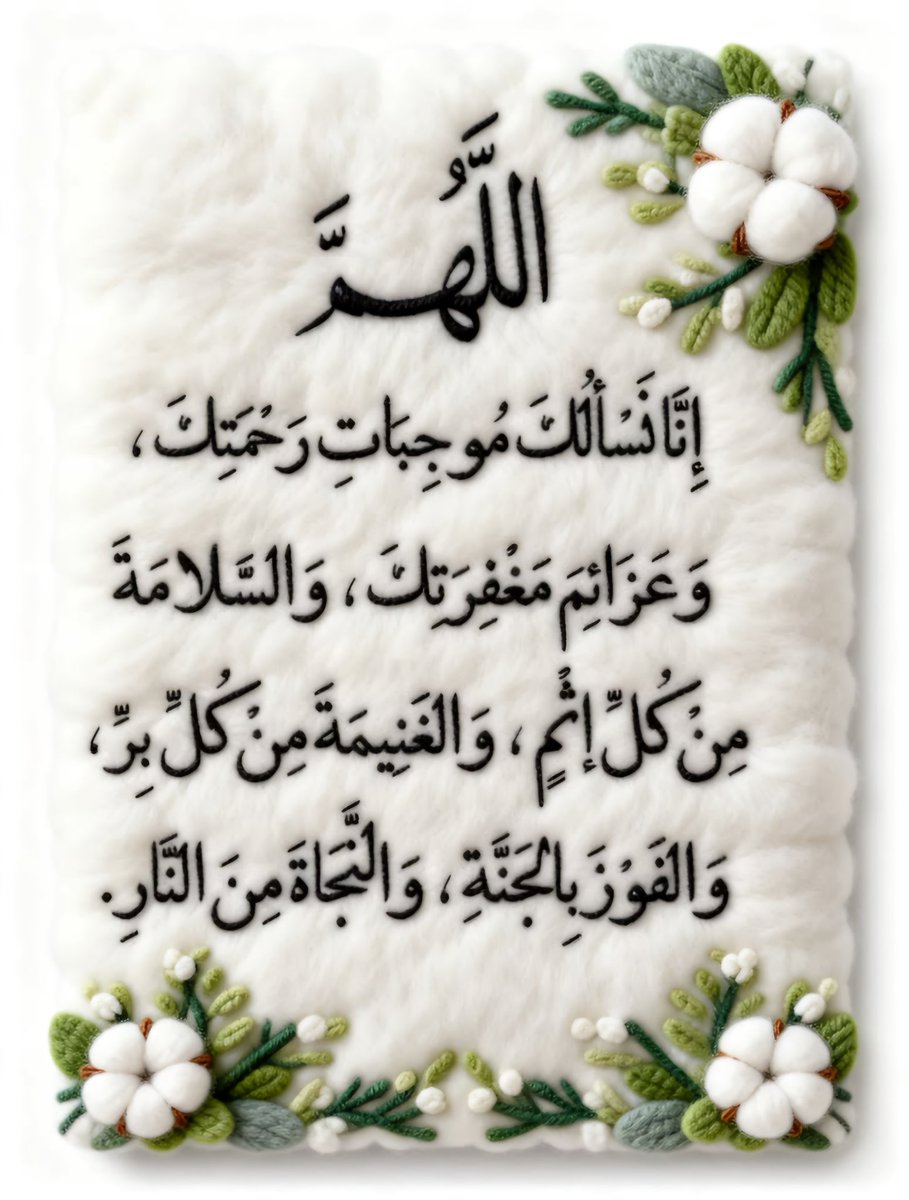 اللَّهُمَّ
إِنَّا نَسْأَلُكَ مُوجِبَاتِ رَحْمَتِكَ،
وَعَزَائِمَ مَغْفِرَتِكَ، وَالسَّلامَةَ
مِنْ كُلِّ إِثْمٍ، وَالغَنِيمَةَ مِنْ كُلِّ بِرٍّ،
وَالفَوْزَ بِالجَنَّةِ، وَالنَّجَاةَ مِنَ النَّارِ.